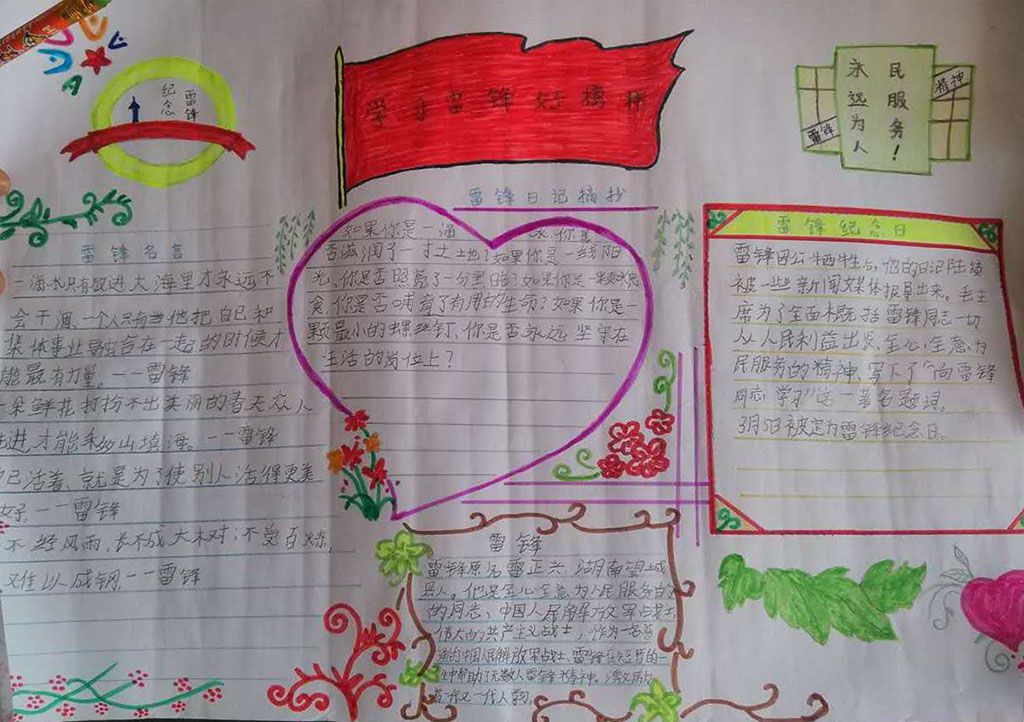 学习雷锋好榜样
雷锋
纪念
永远为人
民服务!
雷锋
精神
雷锋名言
一滴水只有放进大海里才永远不
会干涸、一个人只有当他把自己和
集体事业融合在一起的时候才
能最有力量。一一雷锋
一朵鲜花打扮不出美丽的春天众人
进才能移山填海。一一雷锋
己活着、就是为了使别人活得更美
好。一一雷锋
不经风雨,长不成大树;不受百炼,
难以成钢一一雷锋
雷锋日记摘抄
如果你是一滴水,你是
否滋润了一寸土地?如果你是一线阳
光、你是否照亮了一分黑暗?如果你是一颗粮
食,你是否哺育了有用的生命?如果你是一
颗最小的螺丝钉、你是否永远坚守在
生活的岗位上?
雷锋纪念日
雷锋因公牺牲后,他的日记陆续
被一些新闻媒体报导出来。毛主
席为了全面概括雷锋同志一切
从人民利益出发、全心全意为
民服务的精神、写下了“向雷锋
同志学习”这一著名题词。
3月5日被定为雷锋纪念日。
雷锋
雷锋原名雷正兴、湖南望城
县人。他是全心全意为人民服务
的同志、中国人民解放军战士
伟大的共产主义战士,作为一名普
通的中国人民解放军战士、雷锋在短暂的一
生中帮助了无数人雷锋精神、激励
着一代又一代人